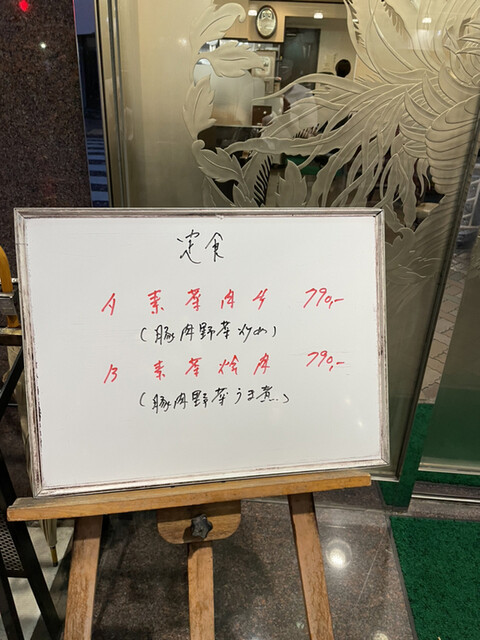 定食
A 素菜肉片 790,-
(豚肉野菜炒め)
B 素菜烩肉 790,-
(豚肉野菜うま煮)